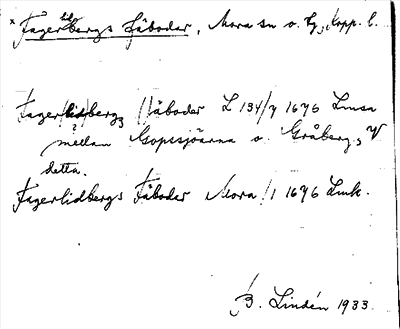 * Fagerlidbergs Fäbodar, Mora sn o. tg, Kopp. l.
Fager(lid)bergs Fäbodar L 134/7 1696 Lmsa
mellan Gopssjöarna o. Gråberg, V
detta.
Fagerlidbergs Fäbodar Mora /1 1696 Lmk.
B. Lindén 1933.